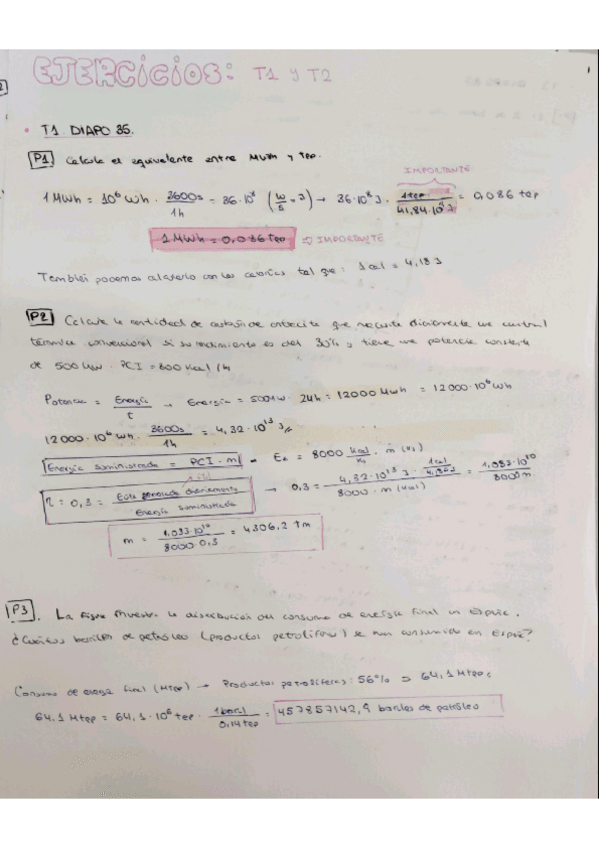 EJERCICIOS: T1 y T2
• T1 DIAPO 35.
P1 Calcula el equivalente entre MWh y tep.
IMPORTANTE
1 MWh = 10⁶ Wh · 3600s / 1h = 36·10⁸ (W/s = J) → 36·10⁸ J · 1 tep / 41,84·10⁹ J = 0,086 tep
1 MWh = 0,086 tep ⇒ IMPORTANTE
También podemos calcularlo con las calorías tal que: 1 cal = 4,18 J
P2 Calcula la cantidad de carbón de antracita que necesita diariamente una central
térmica convencional si su rendimiento es del 30% y tiene una potencia constante
de 500 MW. PCI = 800 kcal /
Potencia = Energía / t → Energía = 500MW · 24h = 12000 MWh = 12000·10⁶ Wh
12000·10⁶ Wh · 3600s / 1h = 4,32·10¹³ J
Energía suministrada = PCI · m = = 8000 kcal / kg · m (kg)
η = 0,3 = generada diariamente / Energía suministrada → 0,3 = 4,32·10¹³ J · / 8000 · m = 1,033·10¹⁰ / 8000m
m = 1,033·10¹⁰ / 8000·0,3 = 4306,2 tm
P3. La figura muestra la distribución del consumo de energía final en España.
¿Cuántos barriles de petróleo (productos petrolíferos) se han consumido en España?
Consumo de energía final (Mtep) → Productos petrolíferos: 56% ⇒ 64,1 Mteps
64,1 Mtep = 64,1·10⁶ tep · 1 barril / 0,14 tep = 457857142,9 barriles de petróleo